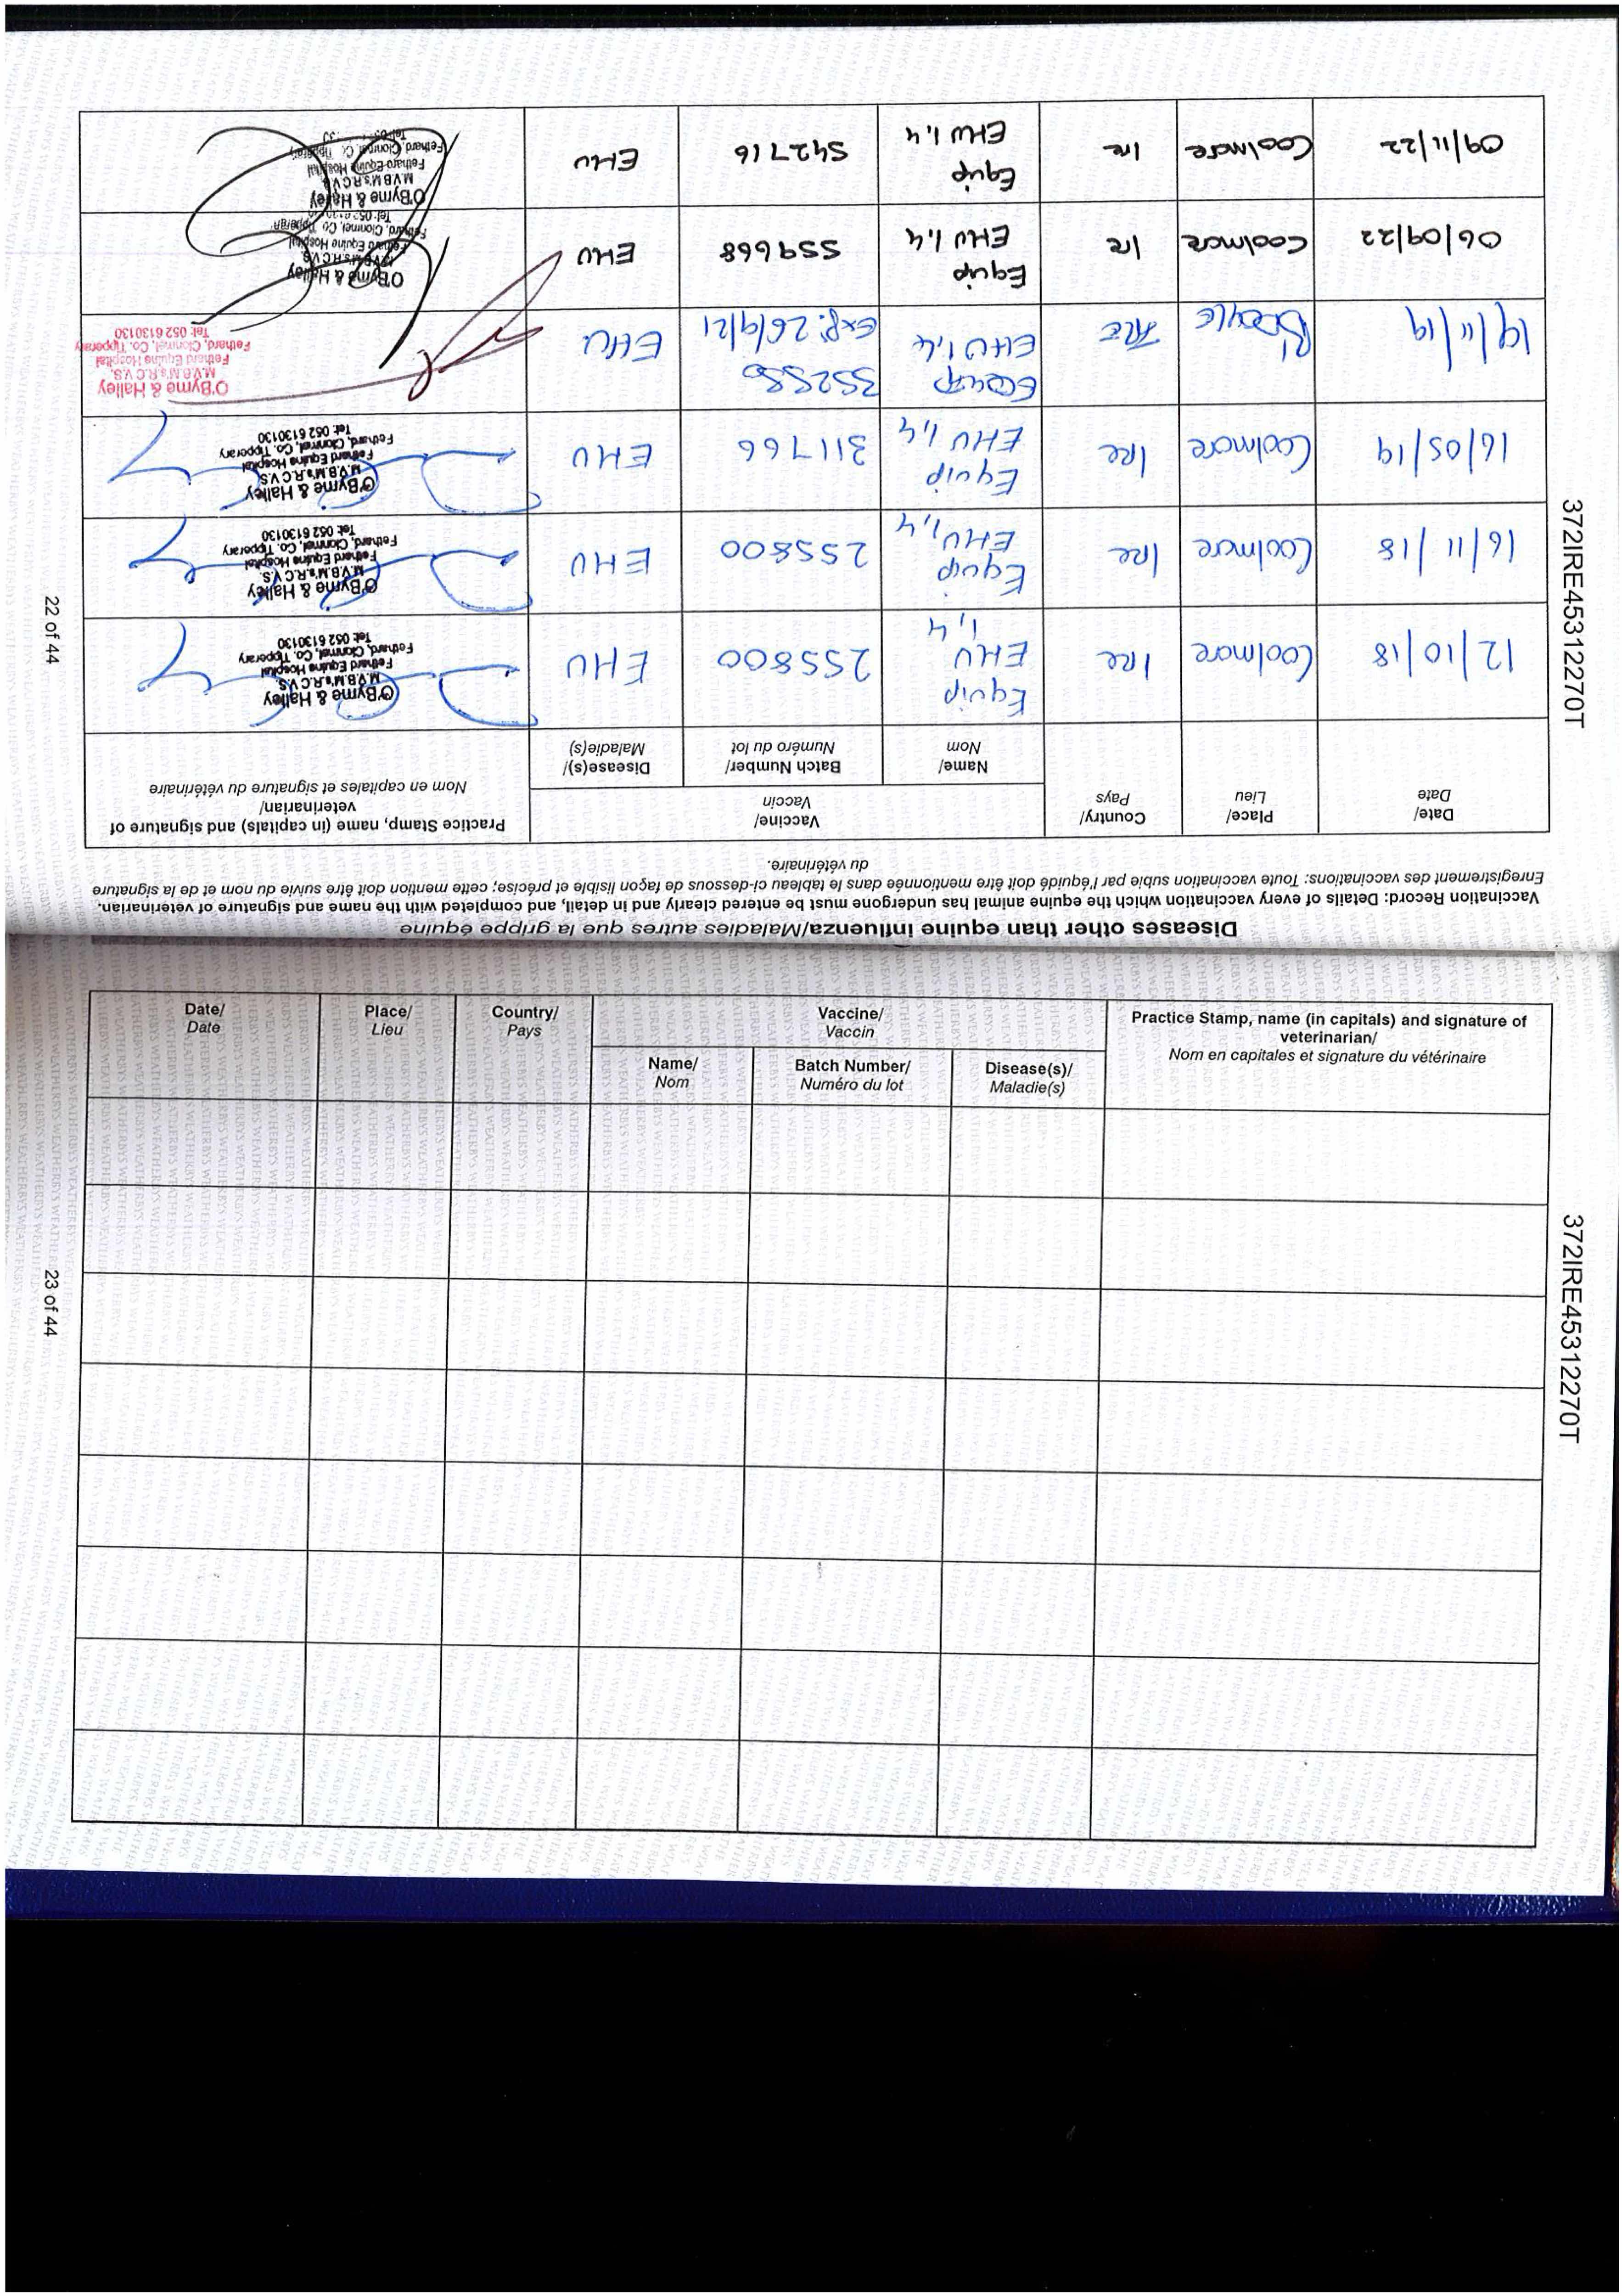 Diseases other than equine influenza/Maladies autres que la grippe équine
Vaccination Record: Details of every vaccination which the equine animal has undergone must be entered clearly and in detail, and completed with the name and signature of veterinarian.
Enregistrement des vaccinations: Toute vaccination subie par l'équidé doit être mentionnée dans le tableau ci-dessous de façon lisible et précise; cette mention doit être suivie du nom et de la signature
du vétérinaire.
Date/
Date
Place/
Lieu
Country/
Pays
Vaccine/
Vaccin
Name/
Nom
Batch Number/
Numéro du lot
Disease(s)/
Maladie(s)
Practice Stamp, name (in capitals) and signature of
veterinarian/
Nom en capitales et signature du vétérinaire
12/10/18
Coolmore
Ire
Equip
EHV
1,4
255800
EHV
O'Byrne & Halley
M.V.B.M's.R.C.V.S.
Fethard Equine Hospital
Fethard, Clonmel, Co. Tipperary
Tel: 052 6130130
16/11/18
Coolmore
Ire
Equip
EHV 1,4
255800
EHV
O'Byrne & Halley
M.V.B.M's.R.C.V.S.
Fethard Equine Hospital
Fethard, Clonmel, Co. Tipperary
Tel: 052 6130130
16/05/19
Coolmore
Ire
Equip
EHV 1,4
311766
EHV
O'Byrne & Halley
M.V.B.M's.R.C.V.S.
Fethard Equine Hospital
Fethard, Clonmel, Co. Tipperary
Tel: 052 6130130
IRE
EQUIP
EHV 1,4
352580
Exp: 26/9/21
EHV
O'Byrne & Halley
M.V.B.M's.R.C.V.S.
Fethard Equine Hospital
Fethard, Clonmel, Co. Tipperary
Tel: 052 6130130
06/09/22
Coolmore
Ire
Equip
EHV 1,4
559668
EHV
O'Byrne & Halley
M.V.B.M's.R.C.V.S.
Fethard Equine Hospital
Fethard, Clonmel, Co. Tipperary
09/11/22
Coolmore
Ire
Equip
EHV 1,4
542716
EHV
O'Byrne & Halley
M.V.B.M's.R.C.V.S.
Fethard Equine Hospital
Fethard, Clonmel, Co. Tipperary
372IRE45312270T
22 of 44
Date/
Date
Place/
Lieu
Country/
Pays
Vaccine/
Vaccin
Name/
Nom
Batch Number/
Numéro du lot
Disease(s)/
Maladie(s)
Practice Stamp, name (in capitals) and signature of
veterinarian/
Nom en capitales et signature du vétérinaire
372IRE45312270T
23 of 44